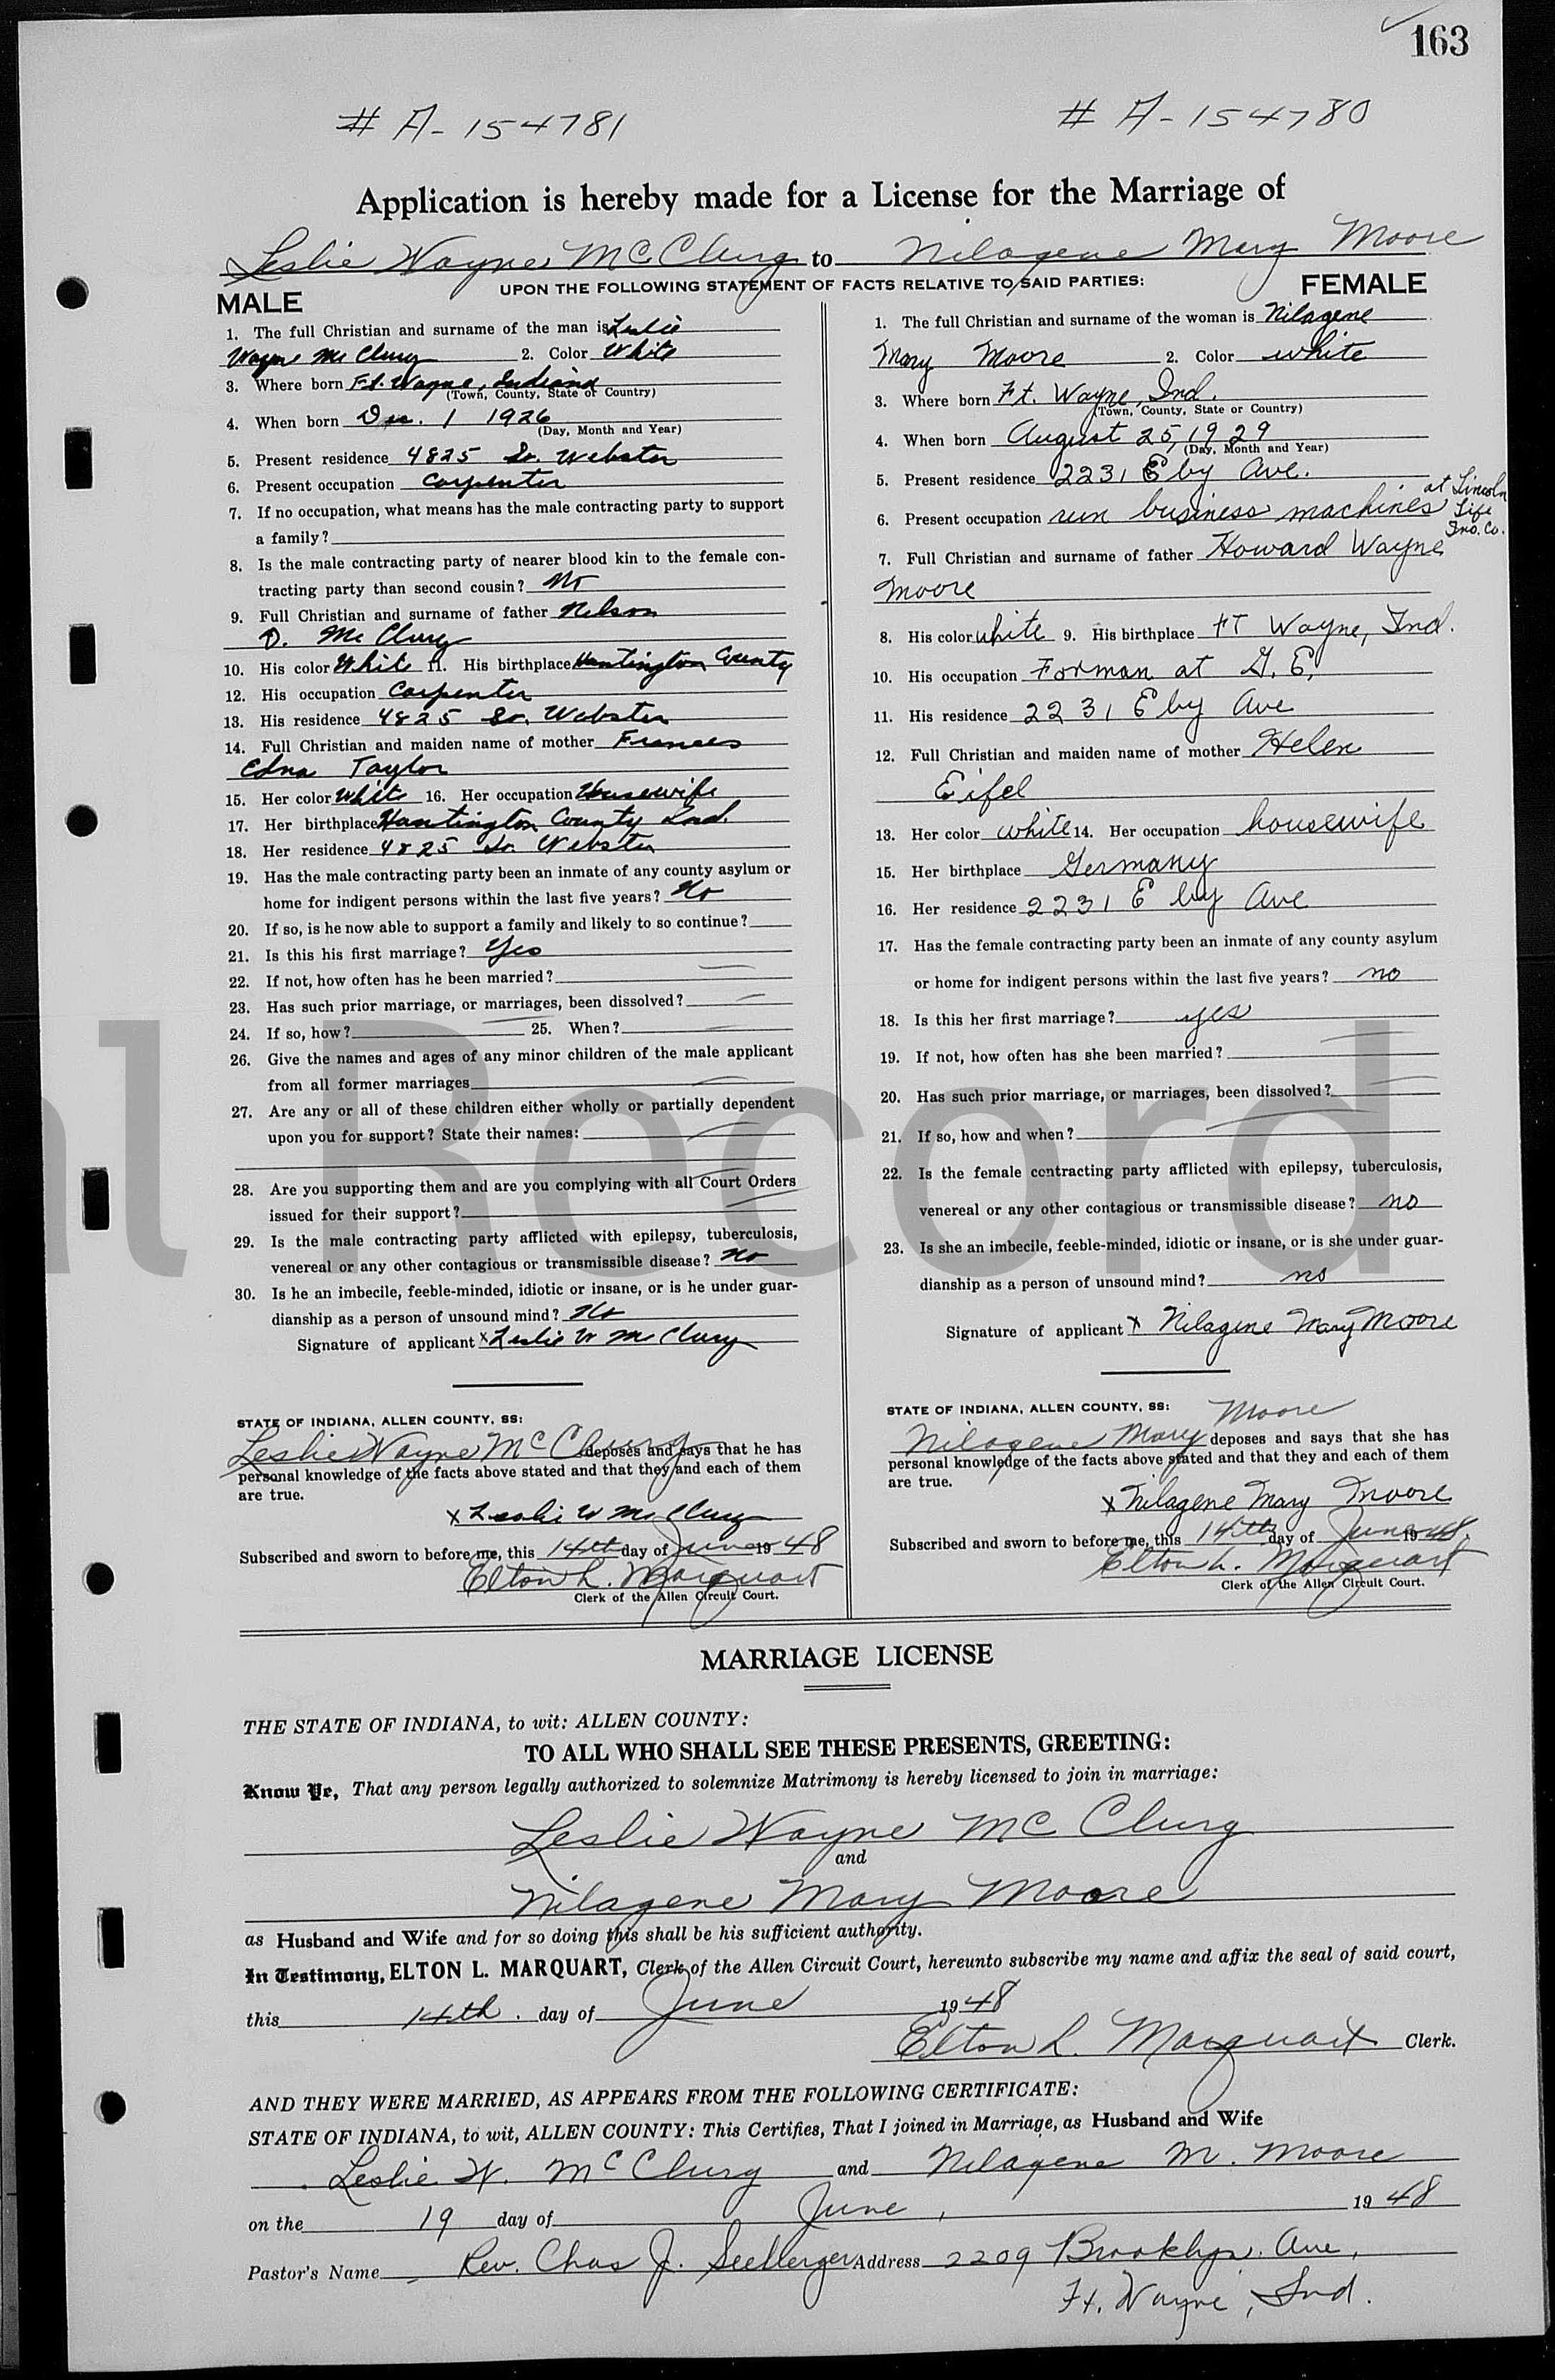 163
# A-154781
# A-154780
Application is hereby made for a License for the Marriage of
Leslie Wayne McClurg to Nilagene Mary Moore
UPON THE FOLLOWING STATEMENT OF FACTS RELATIVE TO SAID PARTIES:
MALE
1. The full Christian and surname of the man is Leslie
Wayne McClurg 2. Color White
3. Where born Ft. Wayne, Indiana
(Town, County, State or Country)
4. When born Dec. 1 1926
(Day, Month and Year)
5. Present residence 4825 So. Webster
6. Present occupation Carpenter
7. If no occupation, what means has the male contracting party to support
a family?
8. Is the male contracting party of nearer blood kin to the female con-
tracting party than second cousin? No
9. Full Christian and surname of father Nelson
D. McClurg
10. His color White 11. His birthplace Huntington County
12. His occupation Carpenter
13. His residence 4825 So. Webster
14. Full Christian and maiden name of mother Frances
Edna Taylor
15. Her color White 16. Her occupation Housewife
17. Her birthplace Huntington County Ind.
18. Her residence 4825 So. Webster
19. Has the male contracting party been an inmate of any county asylum or
home for indigent persons within the last five years? No
20. If so, is he now able to support a family and likely to so continue?
21. Is this his first marriage? Yes
22. If not, how often has he been married?
23. Has such prior marriage, or marriages, been dissolved?
24. If so, how? 25. When?
26. Give the names and ages of any minor children of the male applicant
from all former marriages
27. Are any or all of these children either wholly or partially dependent
upon you for support? State their names:
28. Are you supporting them and are you complying with all Court Orders
issued for their support?
29. Is the male contracting party afflicted with epilepsy, tuberculosis,
venereal or any other contagious or transmissible disease? No
30. Is he an imbecile, feeble-minded, idiotic or insane, or is he under guar-
dianship as a person of unsound mind? No
Signature of applicant x Leslie W McClurg
STATE OF INDIANA, ALLEN COUNTY, SS:
Leslie Wayne McClurg deposes and says that he has
personal knowledge of the facts above stated and that they and each of them
are true.
x Leslie W McClurg
Subscribed and sworn to before me, this 14th day of June 19 48
Elton L. Marquart
Clerk of the Allen Circuit Court.
FEMALE
1. The full Christian and surname of the woman is Nilagene
Mary Moore 2. Color white
3. Where born Ft. Wayne, Ind.
(Town, County, State or Country)
4. When born August 25, 1929
(Day, Month and Year)
5. Present residence 2231 Eby Ave.
6. Present occupation run business machines at Lincoln
Life
Ins. Co.
7. Full Christian and surname of father Howard Wayne
Moore
8. His color white 9. His birthplace FT Wayne, Ind.
10. His occupation Forman at G. E.
11. His residence 2231 Eby Ave
12. Full Christian and maiden name of mother Helen
Eifel
13. Her color white 14. Her occupation housewife
15. Her birthplace Germany
16. Her residence 2231 Eby Ave
17. Has the female contracting party been an inmate of any county asylum
or home for indigent persons within the last five years? no
18. Is this her first marriage? yes
19. If not, how often has she been married?
20. Has such prior marriage, or marriages, been dissolved?
21. If so, how and when?
22. Is the female contracting party afflicted with epilepsy, tuberculosis,
venereal or any other contagious or transmissible disease? no
23. Is she an imbecile, feeble-minded, idiotic or insane, or is she under guar-
dianship as a person of unsound mind? no
Signature of applicant x Nilagene Mary Moore
STATE OF INDIANA, ALLEN COUNTY, SS: Moore
Nilagene Mary deposes and says that she has
personal knowledge of the facts above stated and that they and each of them
are true.
x Nilagene Mary Moore
Subscribed and sworn to before me, this 14th day of June 19 48.
Elton L. Marquart
Clerk of the Allen Circuit Court.
l Record
MARRIAGE LICENSE
THE STATE OF INDIANA, to wit: ALLEN COUNTY:
TO ALL WHO SHALL SEE THESE PRESENTS, GREETING:
Know Ye, That any person legally authorized to solemnize Matrimony is hereby licensed to join in marriage:
Leslie Wayne McClurg
and
Nilagene Mary Moore
as Husband and Wife and for so doing this shall be his sufficient authority.
In Testimony, ELTON L. MARQUART, Clerk of the Allen Circuit Court, hereunto subscribe my name and affix the seal of said court,
this 14th. day of June 19 48
Elton L. Marquart Clerk.
AND THEY WERE MARRIED, AS APPEARS FROM THE FOLLOWING CERTIFICATE:
STATE OF INDIANA, to wit, ALLEN COUNTY: This Certifies, That I joined in Marriage, as Husband and Wife
Leslie W. McClurg and Nilagene M. Moore
on the 19 day of June, 19 48
Pastor's Name Rev. Chas J. Seeberger Address 2209 Brooklyn. Ave,
Ft. Wayne, Ind.